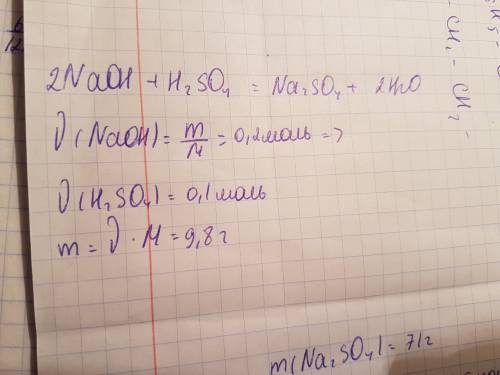 2NaOH + H₂SO₄ = Na₂SO₄ + 2H₂O
ν(NaOH) = m/M = 0,2 моль =>
ν(H₂SO₄) = 0,1 моль
m = ν · M = 9,8 г
m(Na₂SO₄) = 71г
- CH₂ - CH₂ -